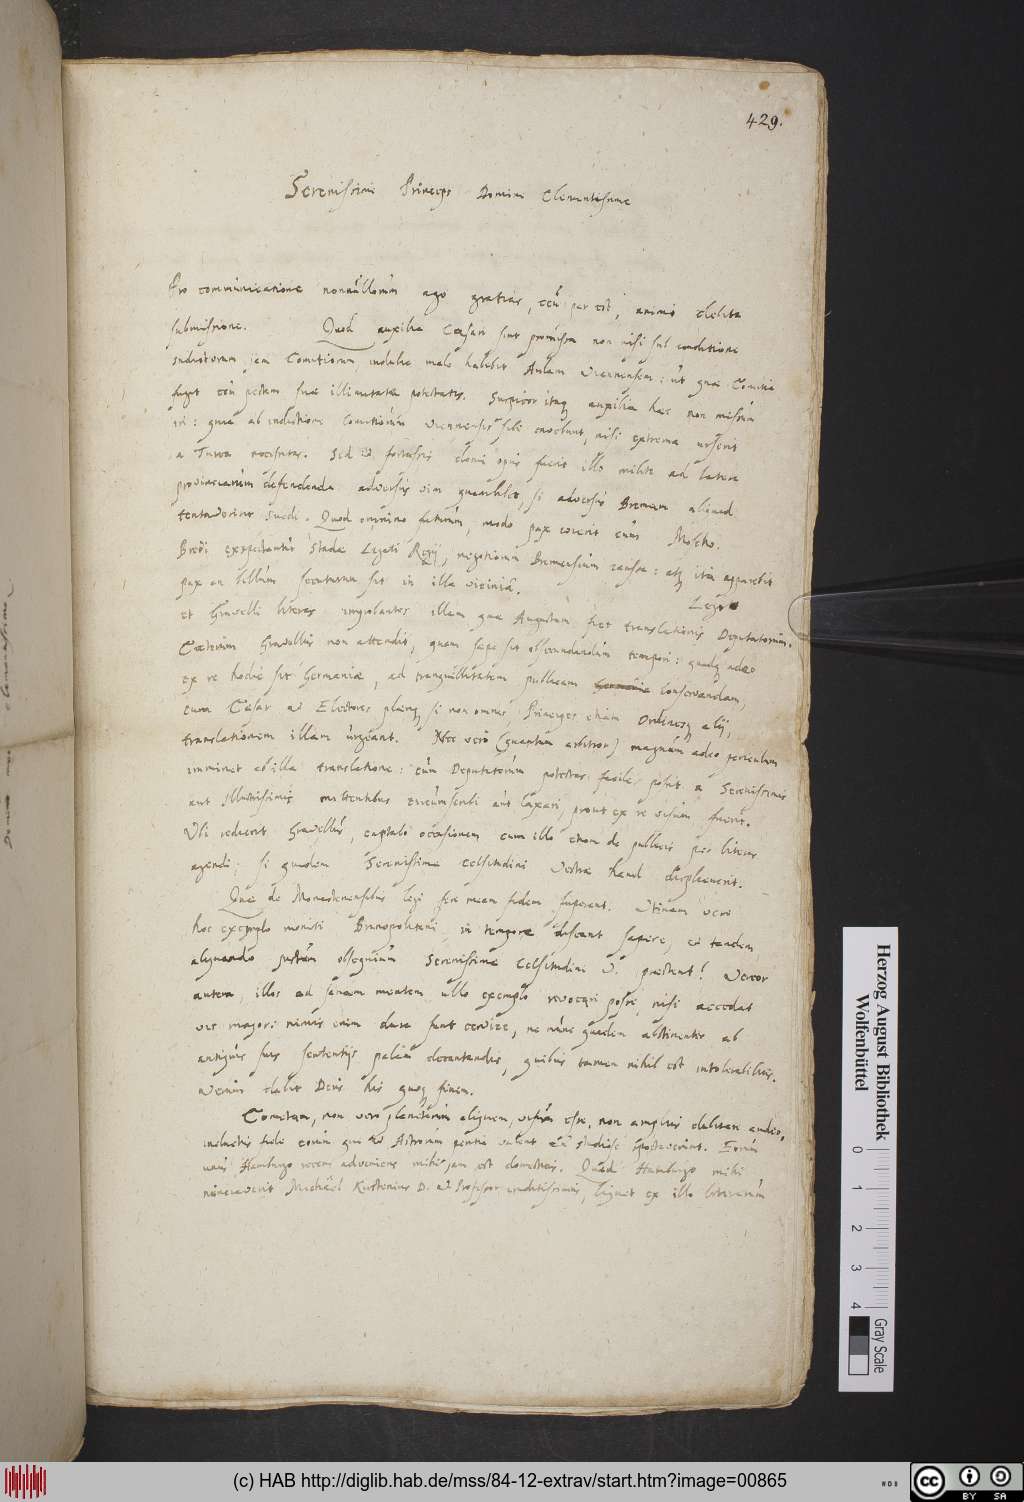 429.
Serenissime Princeps Domine Clementissime
Pro communicatione nonnullorum ago gratias, ceu par est, animi debita
submissione. Quod auxilia Caesari sint promissa non nisi sub conditione
indictorum jam Comitiorum, indubie male habebit Aulam Viennensem: ut quae Comitia
fugit ceu pestem suae illimitatae potestatis. Suspicor itaq auxilia haec non missum
iri: quia ab indictione Comitiorum Viennenses sibi cavebunt, nisi extrema urserit
a Turca necessitas. Sed et fortassis domi opus fuerit illo milite ad latera
provinciarum defendenda adversus vim quamlibet, si adversus Bremam aliquid
tentaverint Suedi. Quod omnino futurum, modo pax coierit cum Moscho.
Brevi exspectantur Stadae Legati Regii, negotiorum Bremensium causa: atq ita apparebit
pax an bellum secuturum sit in illa vicinia.
Legi
et Gravelli literas improbantes illam quae Augustam fiet translationis Deputatorum.
Caeterum Gravellius non attendit, quam saepe sit obsecundandum tempori: quodq adeo
ex re hodie sit Germaniae, ad tranquillitatem publicam conservandam,
cum Caesar et Electores pleriq si non omnes, Principes etiam Ordinesq alii,
translationem illam urgeant. Nec vero (quantum arbitror) magnum adeo periculum
imminet ab illa translatione: cum Deputatorum potestas facile possit a Serenissimis
aut Illustrissimis mittentibus circumscribi aut laxari, prout ex re visum fuerit.
Ubi redierit Gravellius, captabo occasionem cum illo etiam de publicis per literas
agendi; si quidem Serenissimae Celsitudini Vestrae haud displicuerit.
Quae de Monasteriensibus legi fere meam fidem superant. Utinam vero
hoc exemplo moniti Brunopolitani, in tempore discant sapere, et tandem
aliquando justum obsequium Serenissimae Celsitudini V. praestent! Vereor
autem, illos ad sanam mentem ullo exemplo revocari posse, nisi accedat
vis major: nimis enim dura sunt cervice, ne nunc quidem abstinentes ab
antiquis suis sententiis palam decantandis, quibus tamen nihil est intolerabilius.
Verum dabit Deus his quoq finem.
Cometam, non vero planetarum aliquem, visum esse, non amplius dubitare audeo,
inductus fide eorum qui et Astrorum periti valent et studiose spectaverunt. Eorum
unus Hamburgo recens adveniens mihi jam est domesticus. Quod Hamburgo mihi
nunciaverit Michael Kirstenius D. et Professor eruditissimus, liquet ex illo literarum
Herzog August Bibliothek
Wolfenbüttel
0 1 2 3 4
Gray Scale
(c) HAB http://diglib.hab.de/mss/84-12-extrav/start.htm?image=00865
WDB
CC BY SA